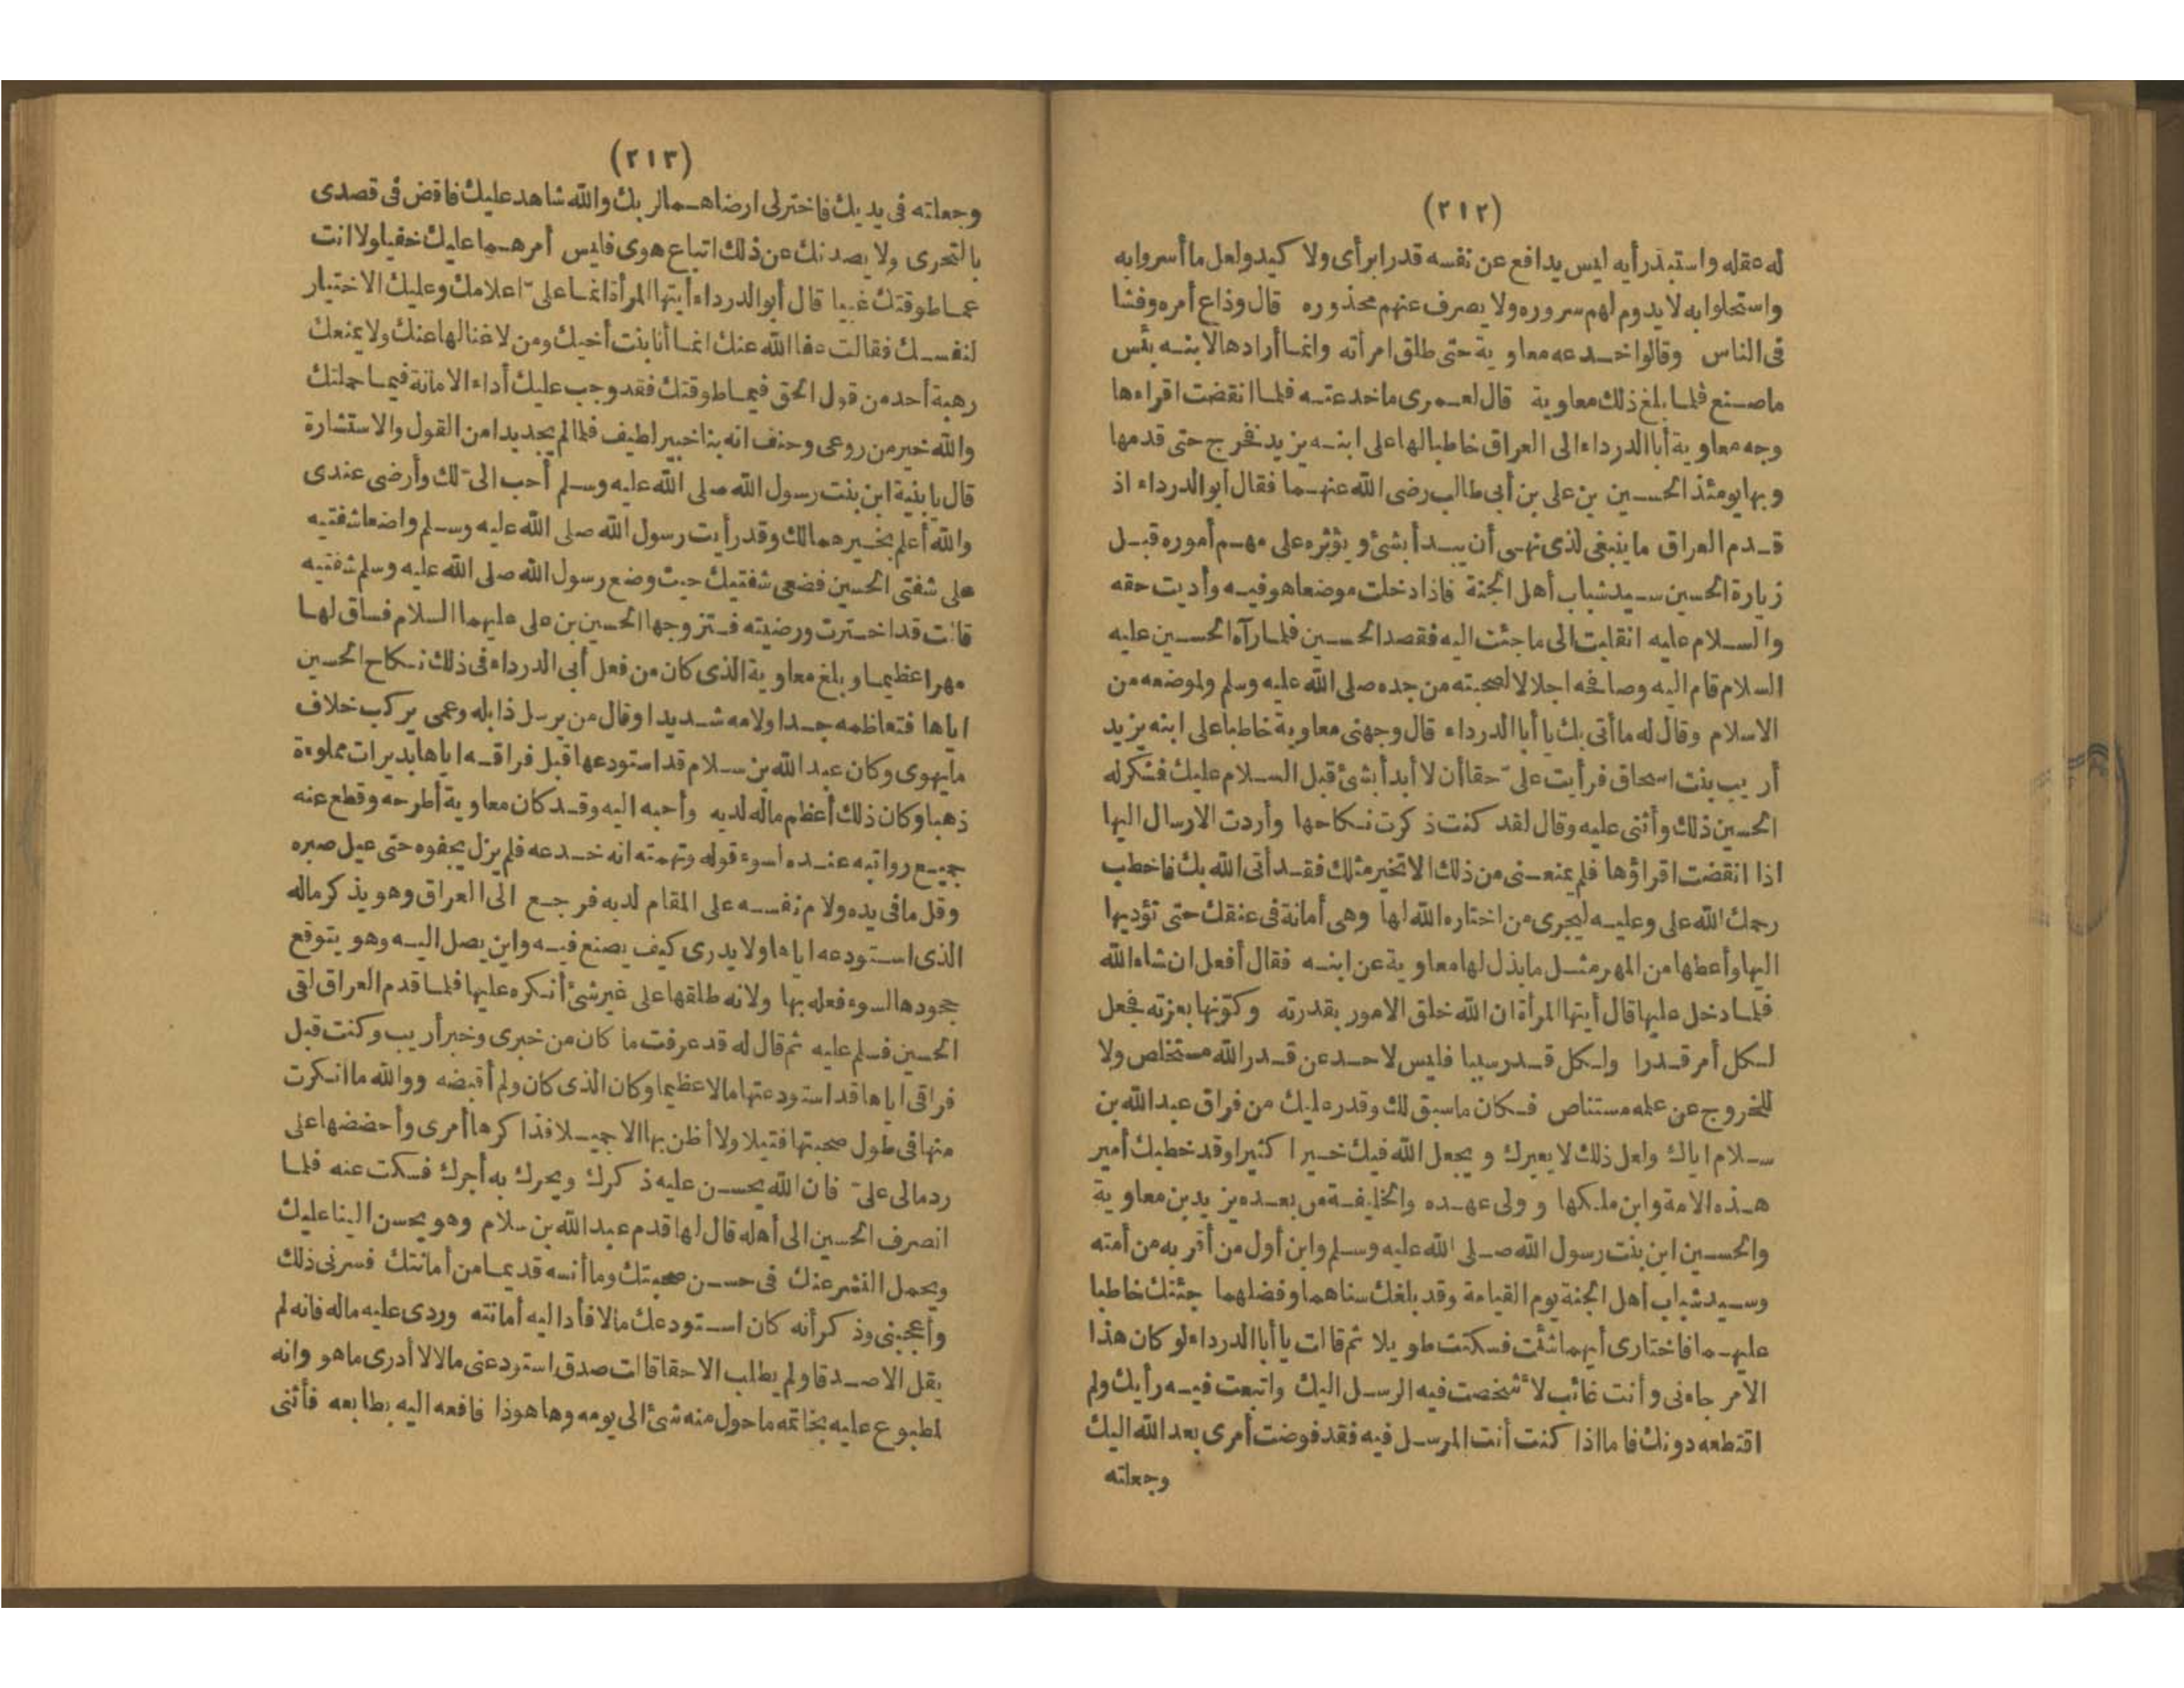 (٢١٢)
له عقله واستبذ رأيه ليس يدافع عن نفسه قدرا برأى ولا كيد ولعل ما أسروا به
واستحلوا به لا يدوم لهم سروره ولا يصرف عنهم محذوره قال وذاع أمره وفشا
فى الناس وقالوا خدعه معاوية حتى طلق امرأته وانما أرادها لابنه بئس
ماصنع فلما بلغ ذلك معاوية قال لعمرى ماخدعته فلما انقضت اقراءها
وجه معاوية أبا الدرداء الى العراق خاطبا لها على ابنه يزيد فخرج حتى قدمها
وبها يومئذ الحسين بن على بن أبى طالب رضى الله عنهما فقال أبو الدرداء اذ
قدم العراق ما ينبغى لذى نهى أن يبدأ بشئ ويؤثره على مهم أموره قبل
زيارة الحسين سيد شباب أهل الجنة فاذا دخلت موضعا هو فيه وأديت حقه
والسلام عليه انقلبت الى ما جئت اليه فقصد الحسين فلما رآه الحسين عليه
السلام قام اليه وصافحه اجلالا لصحبته من جده صلى الله عليه وسلم ولموضعه من
الاسلام وقال له ما أتى بك يا أبا الدرداء قال وجهنى معاوية خاطبا على ابنه يزيد
أريب بنت اسحاق فرأيت علىّ حقا أن لا أبدأ بشئ قبل السلام عليك فشكر له
الحسين ذلك وأثنى عليه وقال لقد كنت ذكرت نكاحها وأردت الارسال اليها
اذا انقضت اقراؤها فلم يمنعنى من ذلك الا تخير مثلك فقد أتى الله بك فاخطب
رحمك الله على وعليه ليجرى من اختاره الله لها وهى أمانة فى عنقك حتى تؤديها
اليها وأعطها من المهر مثل ما بذل لها معاوية عن ابنه فقال أفعل ان شاء الله
فلما دخل عليها قال أيتها المرأة ان الله خلق الامور بقدرته وكوّنها بعزته فجعل
لكل أمر قدرا ولكل قدر سببا فليس لاحد عن قدر الله مستخلص ولا
للخروج عن علمه مستناص فكان ماسبق لك وقدر عليك من فراق عبد الله بن
سلام اياك ولعل ذلك لا يعيرك ويجعل الله فيك خيرا كثيرا وقد خطبك أمير
هذه الامة وابن ملكها وولى عهده والخليفة من بعده يزيد بن معاوية
والحسين ابن بنت رسول الله صلى الله عليه وسلم وابن أول من أقر به من أمته
وسيد شباب أهل الجنة يوم القيامة وقد بلغك سناهما وفضلهما جئتك خاطبا
عليهما فاختارى أيهما شئت فسكتت طويلا ثم قالت يا أبا الدرداء لو كان هذا
الامر جاءنى وأنت غائب لأشخصت فيه الرسل اليك واتبعت فيه رأيك ولم
اقتطعه دونك فاما اذا كنت أنت المرسل فيه فقد فوضت أمرى بعد الله اليك
وجعلته
(٢١٣)
وجعلته فى يديك فاختر لى ارضاهما لربك والله شاهد عليك فاقض فى قصدى
بالتحرى ولا يصدنك عن ذلك اتباع هوى فليس أمرهما عليك خفيا ولا انت
عما طوقتك غبيا قال أبو الدرداء أيتها المرأة انما علىّ اعلامك وعليك الاختيار
لنفسك فقالت عفا الله عنك انما أنا بنت أخيك ومن لا غنا لها عنك ولا يمنعك
رهبة أحد من قول الحق فيما طوقتك فقد وجب عليك أداء الامانة فيما حملتك
والله خير من روعى وحنف انه بنا خبير لطيف فلما لم يجد بدا من القول والاستشارة
قال يا بنية ابن بنت رسول الله صلى الله عليه وسلم أحب الىّ لك وأرضى عندى
والله أعلم بخيرهما لك وقد رأيت رسول الله صلى الله عليه وسلم واضعا شفتيه
على شفتى الحسين فضعى شفتيك حيث وضع رسول الله صلى الله عليه وسلم شفتيه
قالت قد اخترت ورضيته فتزوجها الحسين بن على عليهما السلام فساق لها
مهرا عظيما وبلغ معاوية الذى كان من فعل أبى الدرداء فى ذلك نكاح الحسين
اياها فتعاظمه جدا ولامه شديدا وقال من يرسل ذا بله وعمى يركب خلاف
ما يهوى وكان عبد الله بن سلام قد استودعها قبل فراقه اياها بديرات مملوءة
ذهبا وكان ذلك أعظم ماله لديه وأحبه اليه وقد كان معاوية أطرحه وقطع عنه
جميع رواتبه عنده لسوء قوله وتهمته انه خدعه فلم يزل يجفوه حتى عيل صبره
وقل ما فى يده ولام نفسه على المقام لديه فرجع الى العراق وهو يذكر ماله
الذى استودعه اياها ولا يدرى كيف يصنع فيه واين يصل اليه وهو يتوقع
جحودها لسوء فعله بها ولانه طلقها على غير شئ أنكره عليها فلما قدم العراق لقى
الحسين فسلم عليه ثم قال له قد عرفت ما كان من خبرى وخبر أريب وكنت قبل
فراقى اياها قد استودعتها مالا عظيما وكان الذى كان ولم أقبضه ووالله ما انكرت
منها فى طول صحبتها فتيلا ولا أظن بها الا جميلا فذاكرها أمرى وأحضضها على
رد مالى علىّ فان الله يحسن عليه ذكرك ويجرك به أجرك فسكت عنه فلما
انصرف الحسين الى أهله قال لها قدم عبد الله بن سلام وهو يحسن الينا عليك
ويحمل النشر عنك فى حسن صحبتك وما أنسه قديما من أمانتك فسرنى ذلك
وأعجبنى وذكر أنه كان استودعك مالا فأدا اليه أمانته وردى عليه ماله فانه لم
يقل الا صدقا ولم يطلب الا حقا قالت صدق استردعنى مالا لا أدرى ما هو وانه
لمطبوع عليه بخاتمه ما حول منه شئ الى يومه وها هوذا فافعه اليه بطابعه فأثنى